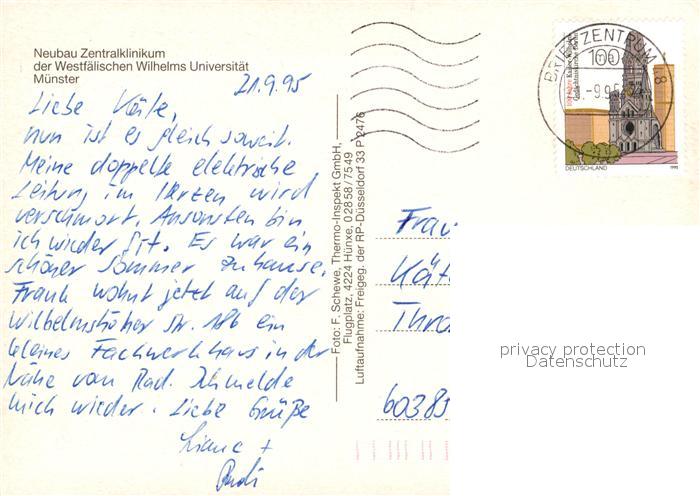 Neubau Zentralklinikum
der Westfälischen Wilhelms Universität
Münster
21.9.95
Liebe Käte,
nun ist es gleich soweit.
Meine doppelte elektrische
Leitung im Herzen wird
verschmort. Ansonsten bin
ich wieder fit. Es war ein
schöner Sommer zuhause.
Frank wohnt jetzt auf der
Wilhelmshöher Str. 186 ein
kleines Fachwerkhaus in der
Nähe von Rad. Ich melde
mich wieder. Liebe Grüße
Liane +
Rudi
Foto: F. Schewe, Thermo-Inspekt GmbH,
Flugplatz, 4224 Hünxe, 0 28 58 / 75 49
Luftaufnahme: Freigeg. der RP-Düsseldorf 33 P 2476
BRIEFZENTRUM
-9.95
100
100 Jahre Kaiser-Wilhelm-
Gedächtniskirche Berlin
DEUTSCHLAND
1995
Frau
Kät
60385
privacy protection
Datenschutz